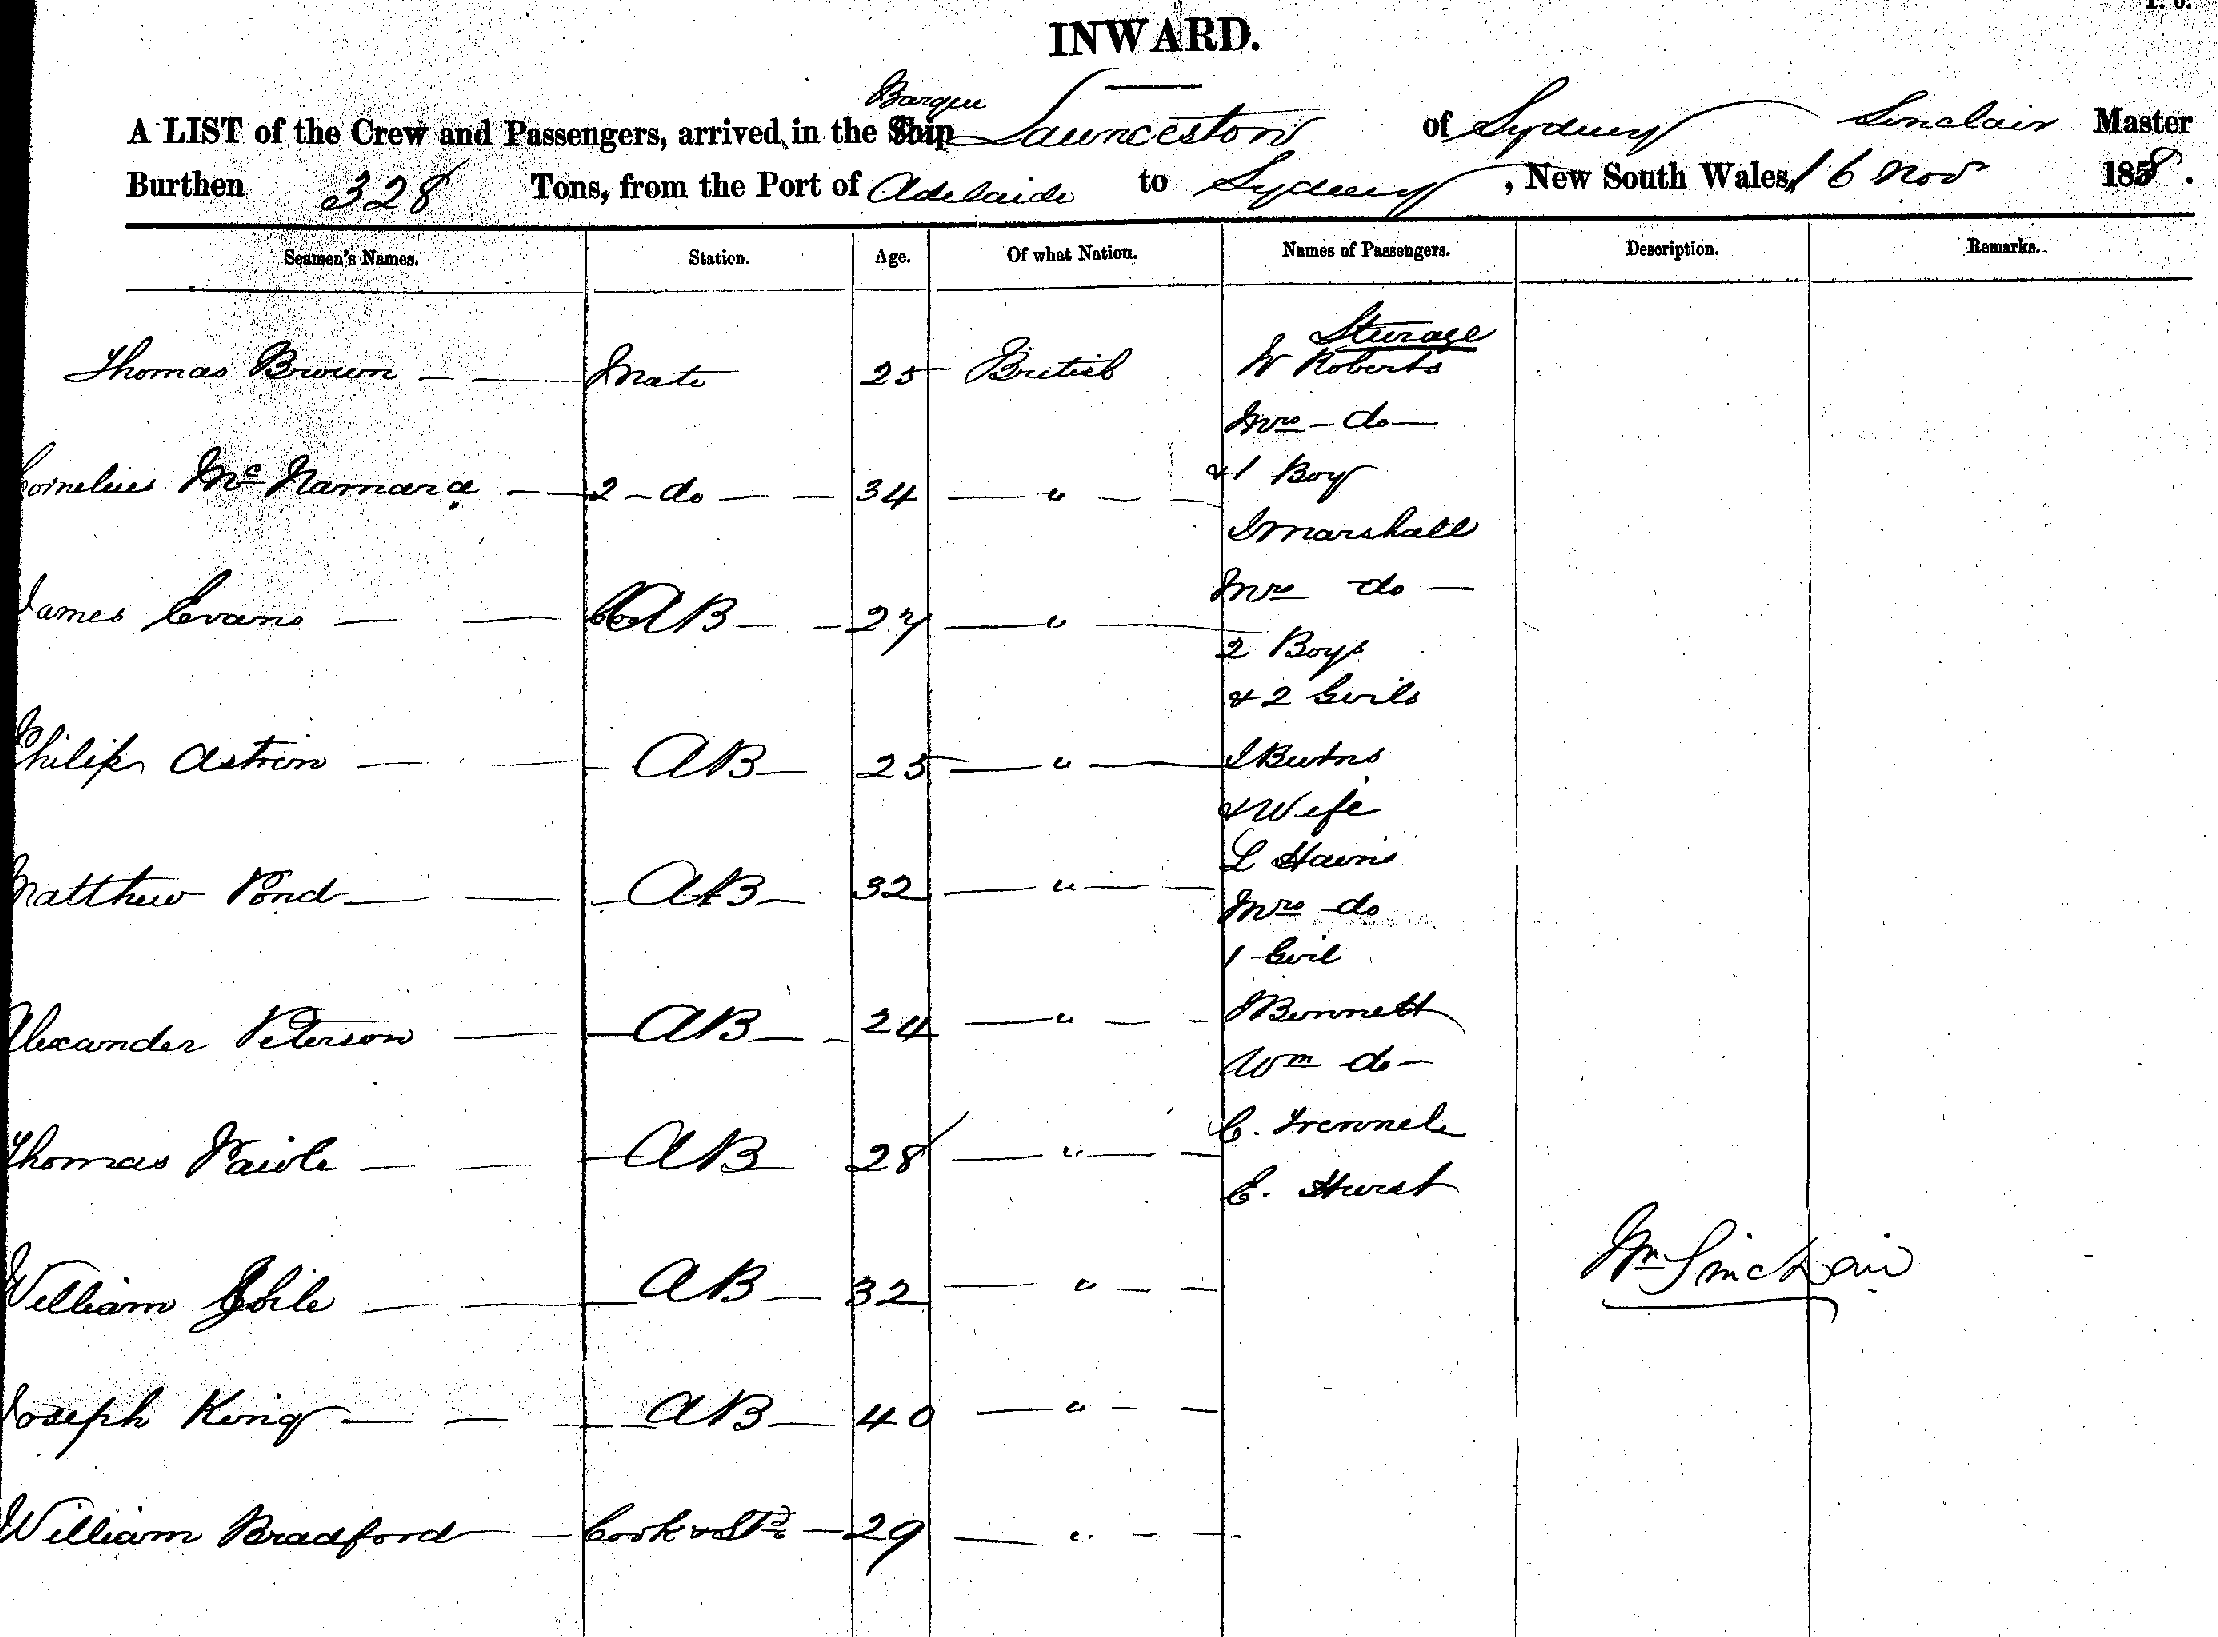 INWARD.
Barque
A LIST of the Crew and Passengers, arrived in the Ship Launceston of Sydney Sinclair Master
Burthen 328 Tons, from the Port of Adelaide to Sydney, New South Wales, 16 Nov 1858.
Seamen's Names. Station. Age. Of what Nation. Names of Passengers. Description. Remarks.
Sturage
Thomas Brown — — Mate 25 British W Roberts
Mrs — do —
Cornelius Mc Namara — — 2 - do — — 34 — " — — & 1 Boy
J Marshall
Mrs do —
James Evans — — AB — — 27 — " —
2 Boys
& 2 Girls
Philip — — AB — 25 — " — J Burns
& Wife
L
Matthew Pond — — AB — 32 — " — —
Mrs do
1 Girl
Alexander Peterson — — AB — - 24 — " — - J Bennett
Wm do —
C.
Thomas — — AB 28 — " — —
E. Hurst
Wm Sinclair
William — — AB — 32 — " — —
Joseph King — — AB — 40 — " — —
William Bradford — — Cook & Std — 29 — " — —